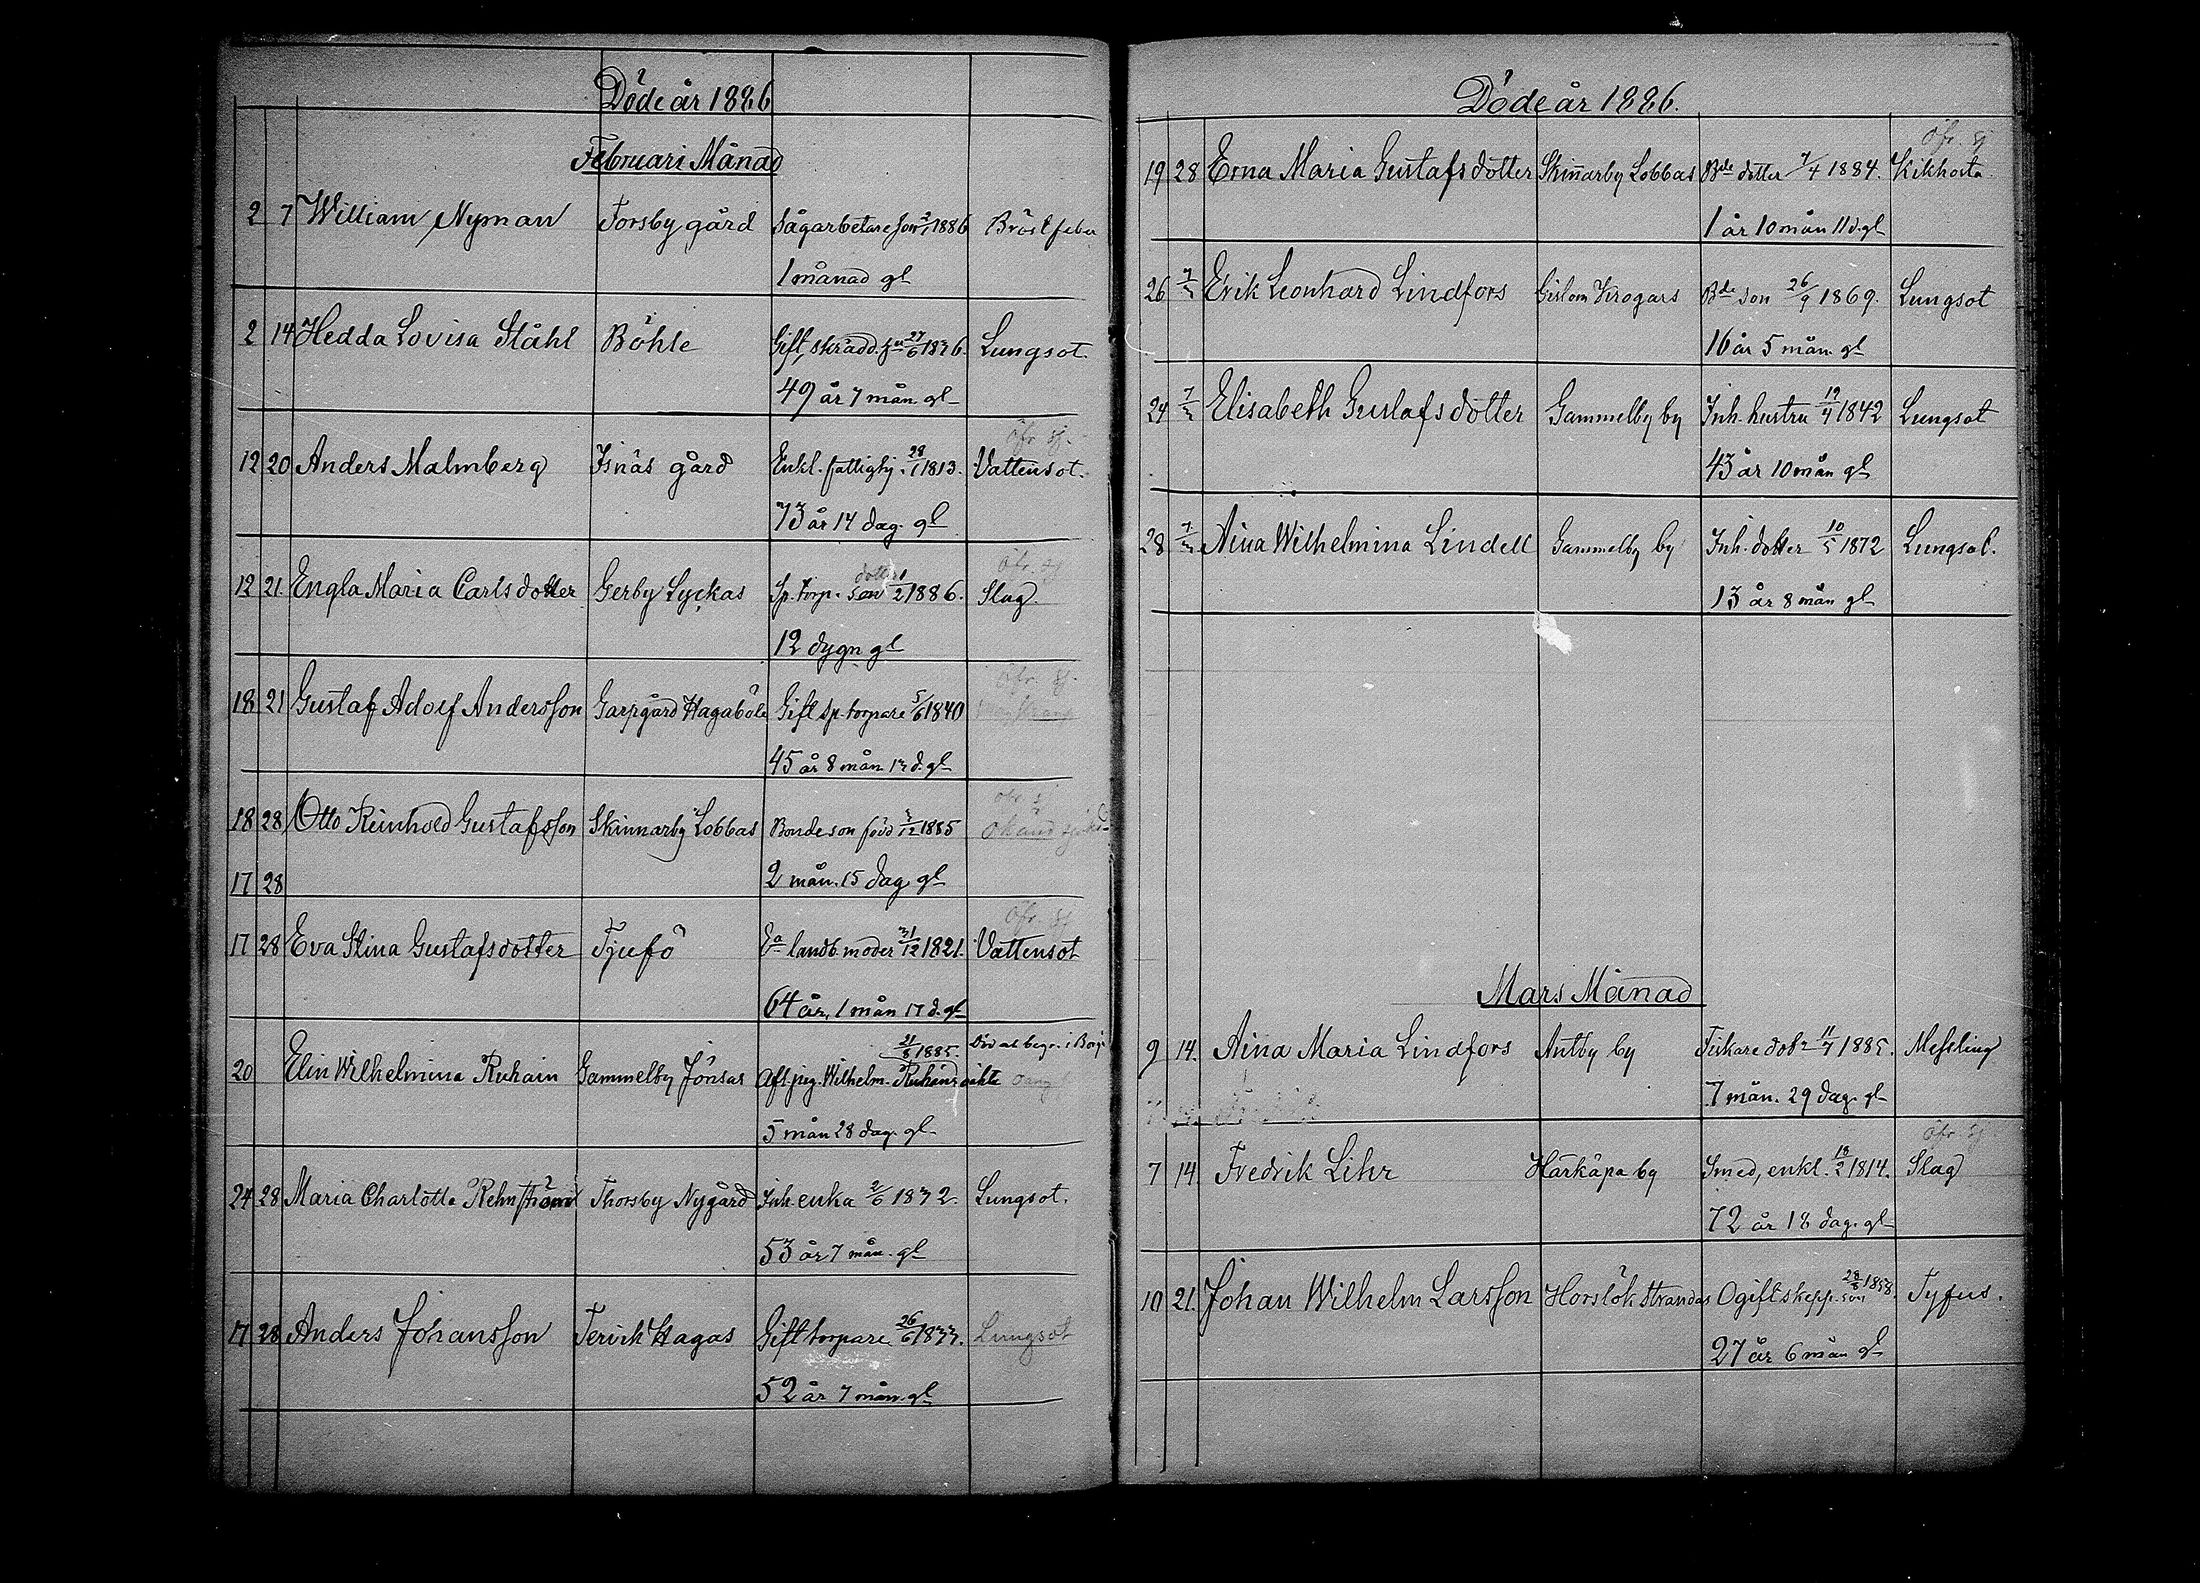 Döde år 1886
Februari Månad
2 7 William Nyman Forsby gård Sågarbetare son 2/1 1886 Bröstfeber
1 månad gl
2 14 Hedda Lovisa Ståhl Böhle Gift, skrädd. 27/6 1836. Lungsot.
49 år 7 mån gl
öfr. sj.
12 20 Anders Malmberg Isnäs gård Enkl. fattighj. 28/1 1813. Vattensot.
73 år 14 dag. gl
dotter öfr. sj
12 21 Engla Maria Carlsdotter Gerby Lyckas Sp. torp. son 1/2 1886. Slag
12 dygn gl
öfr. sj.
18 21 Gustaf Adolf Andersson Garpgård Hagaböle Gift sp. torpare 5/6 1840
45 år 8 mån 13 d. gl
öfr. sj
18 28 Otto Reinhold Gustafsson Skinnarby Lobbas Bonde son född 3/12 1885 Okänd
17 28 2 mån. 15 dag gl
öfr. sj
17 28 Eva Stina Gustafsdotter Tjufö Ea landb. moder 31/12 1821. Vattensot
64 år, 1 mån 17 d. gl
21/8 1885. Död at begr. i Borgå
20 Elin Wilhelmina Ruhain Gammelby Jönsas Aft. pig. Wilhelm. Ruhains oäkta
5 mån 28 dag. gl.
24 28 Maria Charlotta Rehnström Thorsby Nygård Inh. enka 2/6 1832. Lungsot.
53 år 7 mån. gl
17 28 Anders Johansson Tervik Hagas Gift torpare 26/6 1833. Lungsot
52 år 7 mån. gl
Döde år 1886.
öfr. sj
19 28 Erna Maria Gustafsdotter Skinnarby Lobbas Bde dotter 7/4 1884. Kikhosta
1 år 10 mån 11 d. gl
26 7/3 Erik Leonhard Lindfors Gislom Krogars Bde son 26/9 1869. Lungsot
16 år 5 mån. gl
24 7/3 Elisabeth Gustafsdotter Gammelby by Inh. hustru 19/4 1842 Lungsot
43 år 10 mån gl
28 7/3 Aina Wilhelmina Lindell Gammelby by Inh. dotter 10/5 1872 Lungsot.
13 år 8 mån gl
Mars Månad
9 14. Aina Maria Lindfors Antby by Fiskare dotr 11/7 1885. Messling
7 mån. 29 dag. gl
öfr. sj
7 14 Fredrik Lihr Härkäpä by Smed, enkl. 18/2 1814. Slag
72 år 18 dag. gl
10 21. Johan Wilhelm Larsson Horslök Strandas Ogift skepp. son 28/8 1858. Tyfus.
27 år 6 mån gl